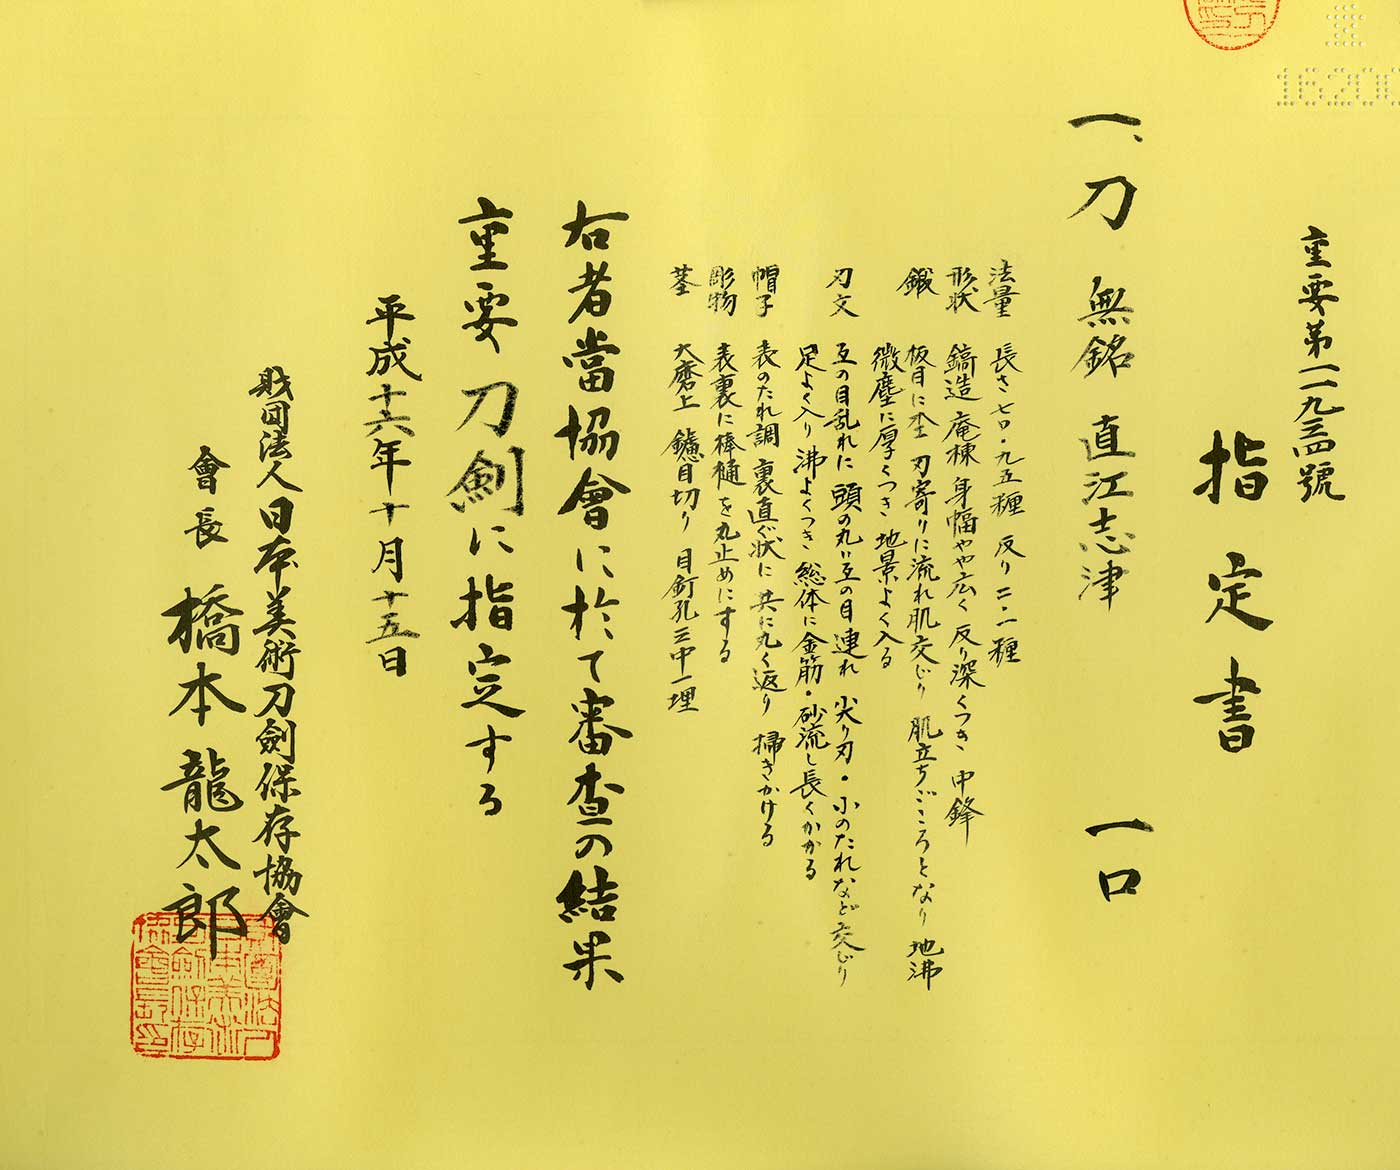 重要第一一九三四號
指定書
一、刀 無銘 直江志津 一口
法量 長さ七〇・九五糎 反り二・一糎
形状 鎬造 庵棟 身幅やや広く 反り深くつき 中鋒
鍛 板目に杢 刃寄りに流れ肌交じり 肌立ちごころとなり 地沸
微塵に厚くつき 地景よく入る
刃文 互の目乱れに 頭の丸い互の目連れ 尖り刃・小のたれなど交じり
足よく入り 沸よくつき 総体に金筋・砂流し長くかかる
帽子 表のたれ調 裏直ぐ状に 共に丸く返り 掃きかける
彫物 表裏に棒樋を丸止めにする
茎 大磨上 鑢目切り 目釘孔三中一埋
右者當協會に於て審査の結果
重要刀劍に指定する
平成十六年十月十五日
財団法人日本美術刀劍保存協會
會長 橋本龍太郎
16200